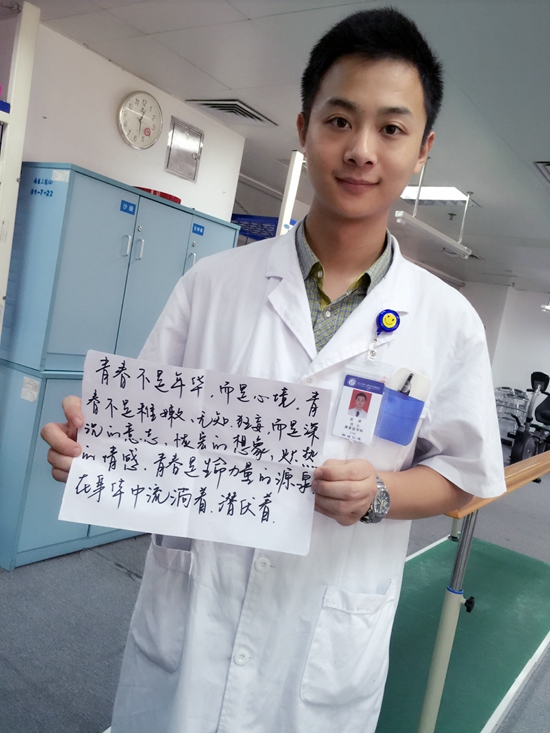 青春不是年华,而是心境,青
春不是稚嫩、无知、狂妄,而是深
沉的意志,恢宏的想象,炽热
的情感,青春是生命力量的源泉
在季节中流淌着,潜伏着.